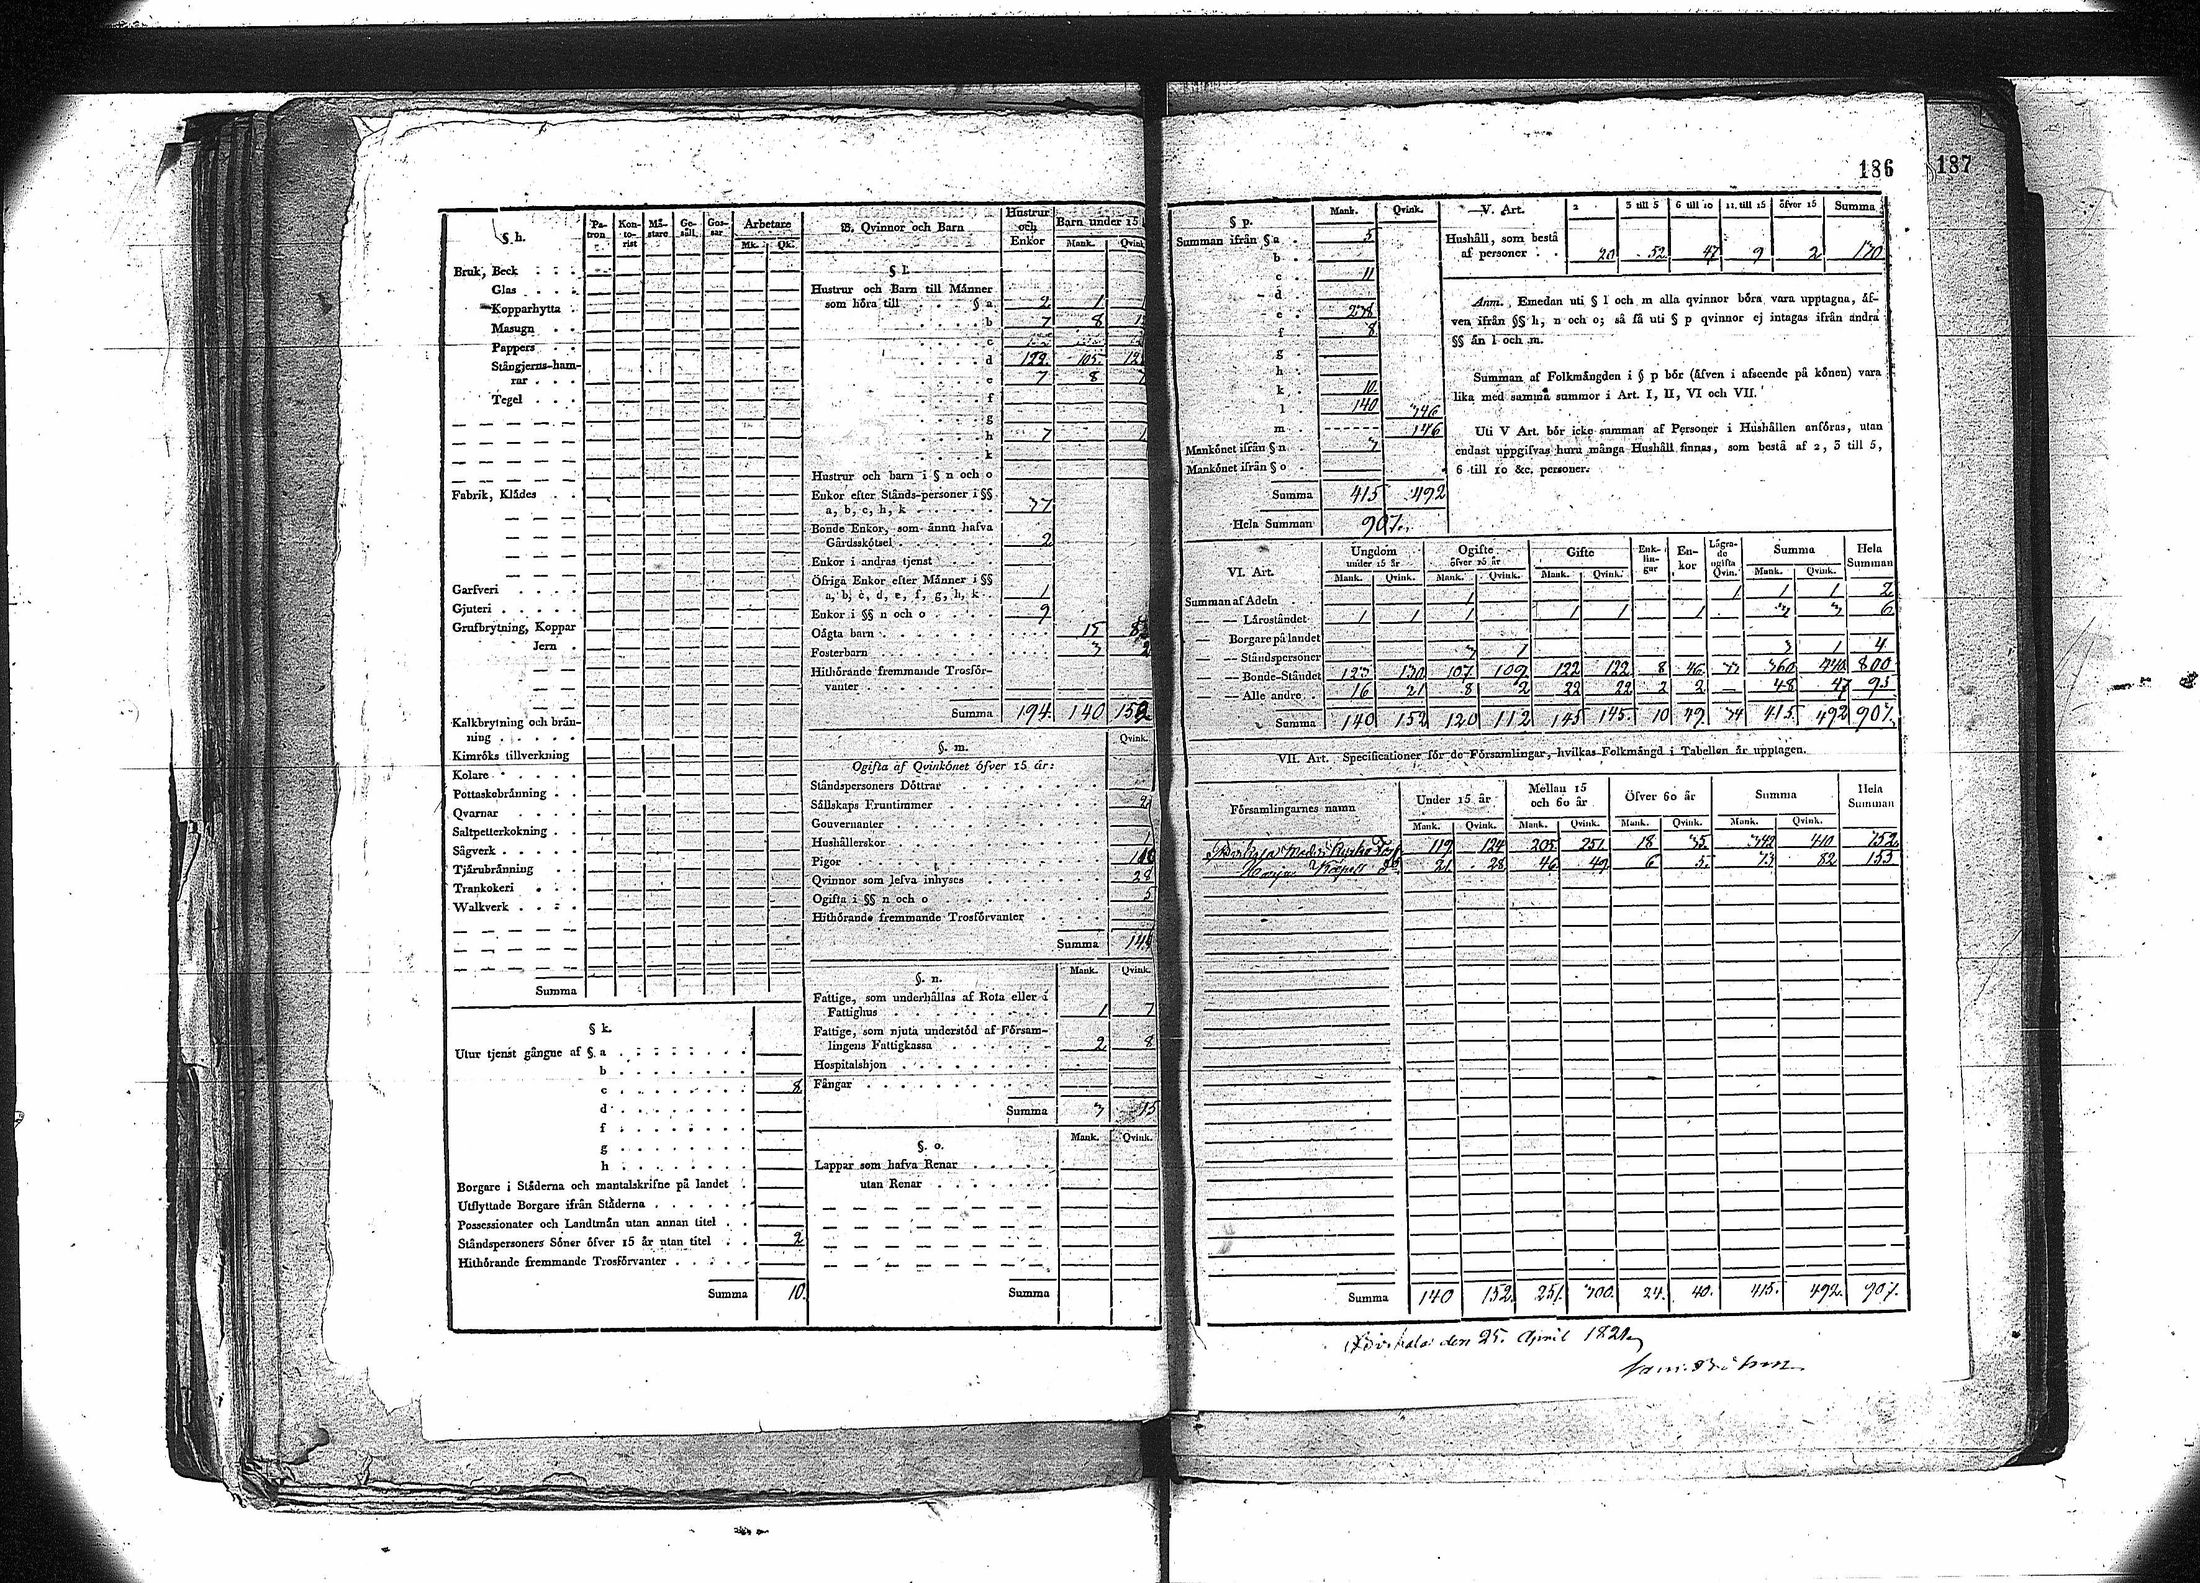 186 187
§ h.
Pa-tron Kon-to-rist Mä-stare Ge-säll Gos-sar Arbetare
Mk. Qk.
Bruk, Beck
Glas
Kopparhytta
Masugn
Pappers
Stångjerns-ham-
rar
Tegel
Fabrik, Klädes
Garfveri
Gjuteri
Grufbrytning, Koppar
Jern
Kalkbrytning och brän-
ning
Kimröks tillverkning
Kolare
Pottaskebränning
Qvarnar
Saltpetterkokning
Sågverk
Tjärubränning
Trankokeri
Walkverk
Summa
§ k.
Utur tjenst gångne af § a
b
c 8
d
f
g
h
Borgare i Städerna och mantalskrifne på landet
Utflyttade Borgare ifrån Städerna
Possessionater och Landtmän utan annan titel
Ståndspersoners Söner öfver 15 år utan titel 2
Hithörande fremmande Trosförvanter
Summa 10.
B. Qvinnor och Barn Hustrur och Enkor Barn under 15
Mank. Qvink
§ l.
Hustrur och Barn till Männer
som höra till § a 2 1 1
b 7 8
c
d 122. 105.
e 7 8 7
f
g
h 7 1
k
Hustrur och barn i § n och o
Enkor efter Stånds-personer i §§
a, b, c, h, k 37
Bonde Enkor, som ännu hafva
Gårdsskötsel 2
Enkor i andras tjenst
Öfriga Enkor efter Männer i §§
a, b, c, d, e, f, g, h, k 1
Enkor i §§ n och o 9
Oägta barn 15
Fosterbarn 3 2
Hithörande fremmande Trosför-
vanter
Summa 194. 140 152
§. m. Qvink.
Ogifta af Qvinkönet öfver 15 år:
Ståndspersoners Döttrar
Sällskaps Fruntimmer 2
Gouvernanter
Hushållerskor 1
Pigor 110
Qvinnor som lefva inhyses 28
Ogifta i §§ n och o 5
Hithörande fremmande Trosförvanter
Summa 146
§. n. Mank. Qvink.
Fattige, som underhållas af Rota eller i
Fattighus 1 7
Fattige, som njuta understöd af Försam-
lingens Fattigkassa 2 8
Hospitalshjon
Fångar
Summa 3 15
§. o. Mank. Qvink.
Lappar som hafva Renar
utan Renar
Summa
§ p. Mank. Qvink.
Summan ifrån § a 5
b
c 11
d
e 238
f 8
g
h
k 10
l 140 346
m 146
Mankönet ifrån § n 3
Mankönet ifrån § o
Summa 415 492
Hela Summan 907.
V. Art. 2 3 till 5 6 till 10 11 till 15 öfver 15 Summa
Hushåll, som bestå
af personer 20 52 47 9 2 130
Anm. Emedan uti § l och m alla qvinnor böra vara upptagna, äf-
ven ifrån §§ h, n och o; så få uti § p qvinnor ej intagas ifrån andra
§§ än l och m.
Summan af Folkmängden i § p bör (äfven i afseende på könen) vara
lika med samma summor i Art. I, II, VI och VII.
Uti V Art. bör icke summan af Personer i Hushållen anföras, utan
endast uppgifvas huru många Hushåll finnas, som bestå af 2, 3 till 5,
6 till 10 &c. personer.
VI. Art. Ungdom under 15 år Ogifte öfver 15 år Gifte Enk-lin-gar En-kor Lägra-de ogifta Qvin. Summa Hela Summan
Mank. Qvink. Mank. Qvink. Mank. Qvink. Mank. Qvink.
Summan af Adeln 1 1 1 1 2
Läroståndet 1 1 1 1 1 1 3 3 6
Borgare på landet
Ståndspersoner 3 1 3 1 4
Bonde-Ståndet 123 130 107 109 122 122 8 46 33 360 440 800
Alle andre 16 21 8 2 22 22 2 2 48 47 95
Summa 140 152 120 112 145 145. 10 49 34 415. 492 907.
VII. Art. Specificationer för de Församlingar, hvilkas Folkmängd i Tabellen är upptagen.
Församlingarnes namn Under 15 år Mellan 15 och 60 år Öfver 60 år Summa Hela Summan
Mank. Qvink. Mank. Qvink. Mank. Qvink. Mank. Qvink.
Birkala Moder Kyrko 119 124 205 251 18 35 342 410 752
Harju Kapell 21 28 46 49 6 5 73 82 155
Summa 140 152. 251. 300. 24. 40. 415. 492. 907.
Birkala den 25. April 1821